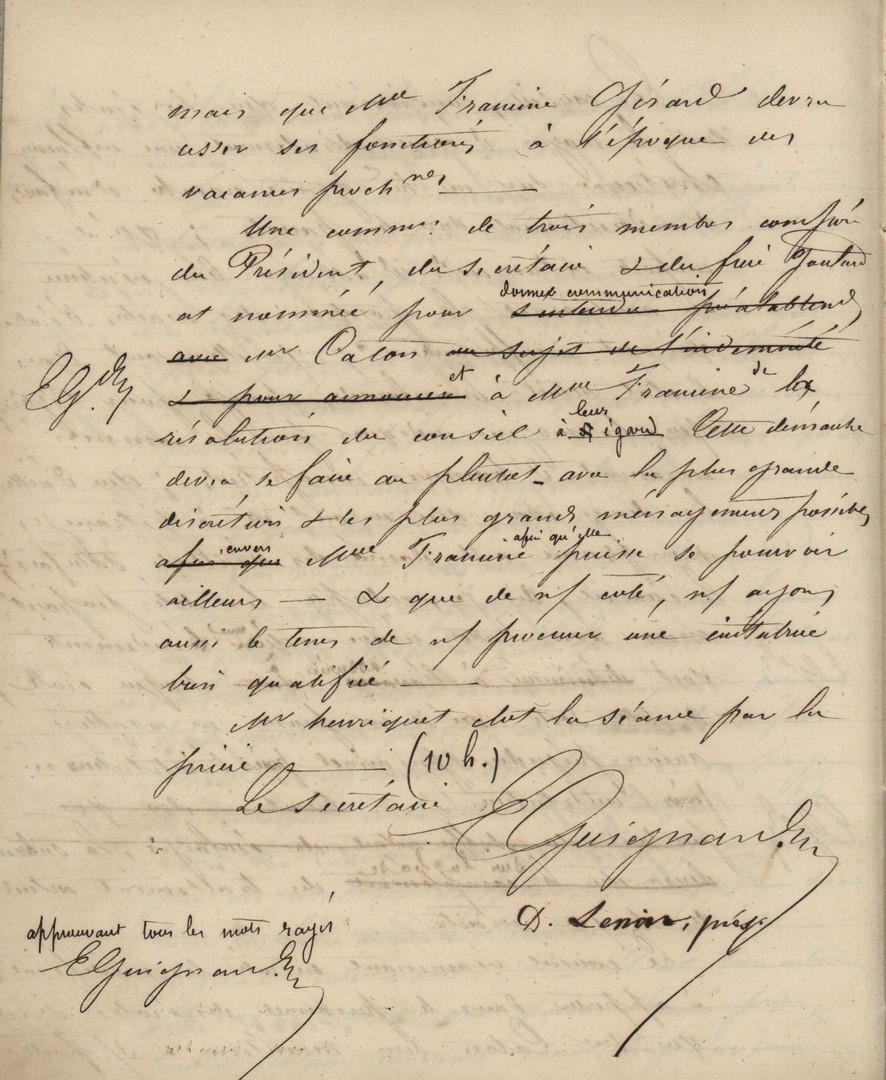 mais que Mlle Francine Gérard devra
cesser ses fonctions à l'époque des
vacances proch.nes
Une common. de trois membres composée
du Président, du secrétaire & du frère Goulard
est nommée pour donner communication s'entendre préalablemt
avec Mr Caton au sujet de l'indemnité
& pour annoncer et à Mlle Francine de la
résolution du conseil à leur égard Cette démarche
devra se faire au plutôt avec la plus grande
discrétion & les plus grands ménagements possibles
afin que envers Mlle Francine afin qu'elle puisse se pourvoir
ailleurs — & que de ns coté, ns ayons
aussi le tems de ns procurer une institutrice
bien qualifiée —
Mr henriquet clot la séance par la
prière — (10 h.)
Le secrétaire E Guignard
D. Lenoir, prés.
approuvant tous les mots rayés
E Guignard